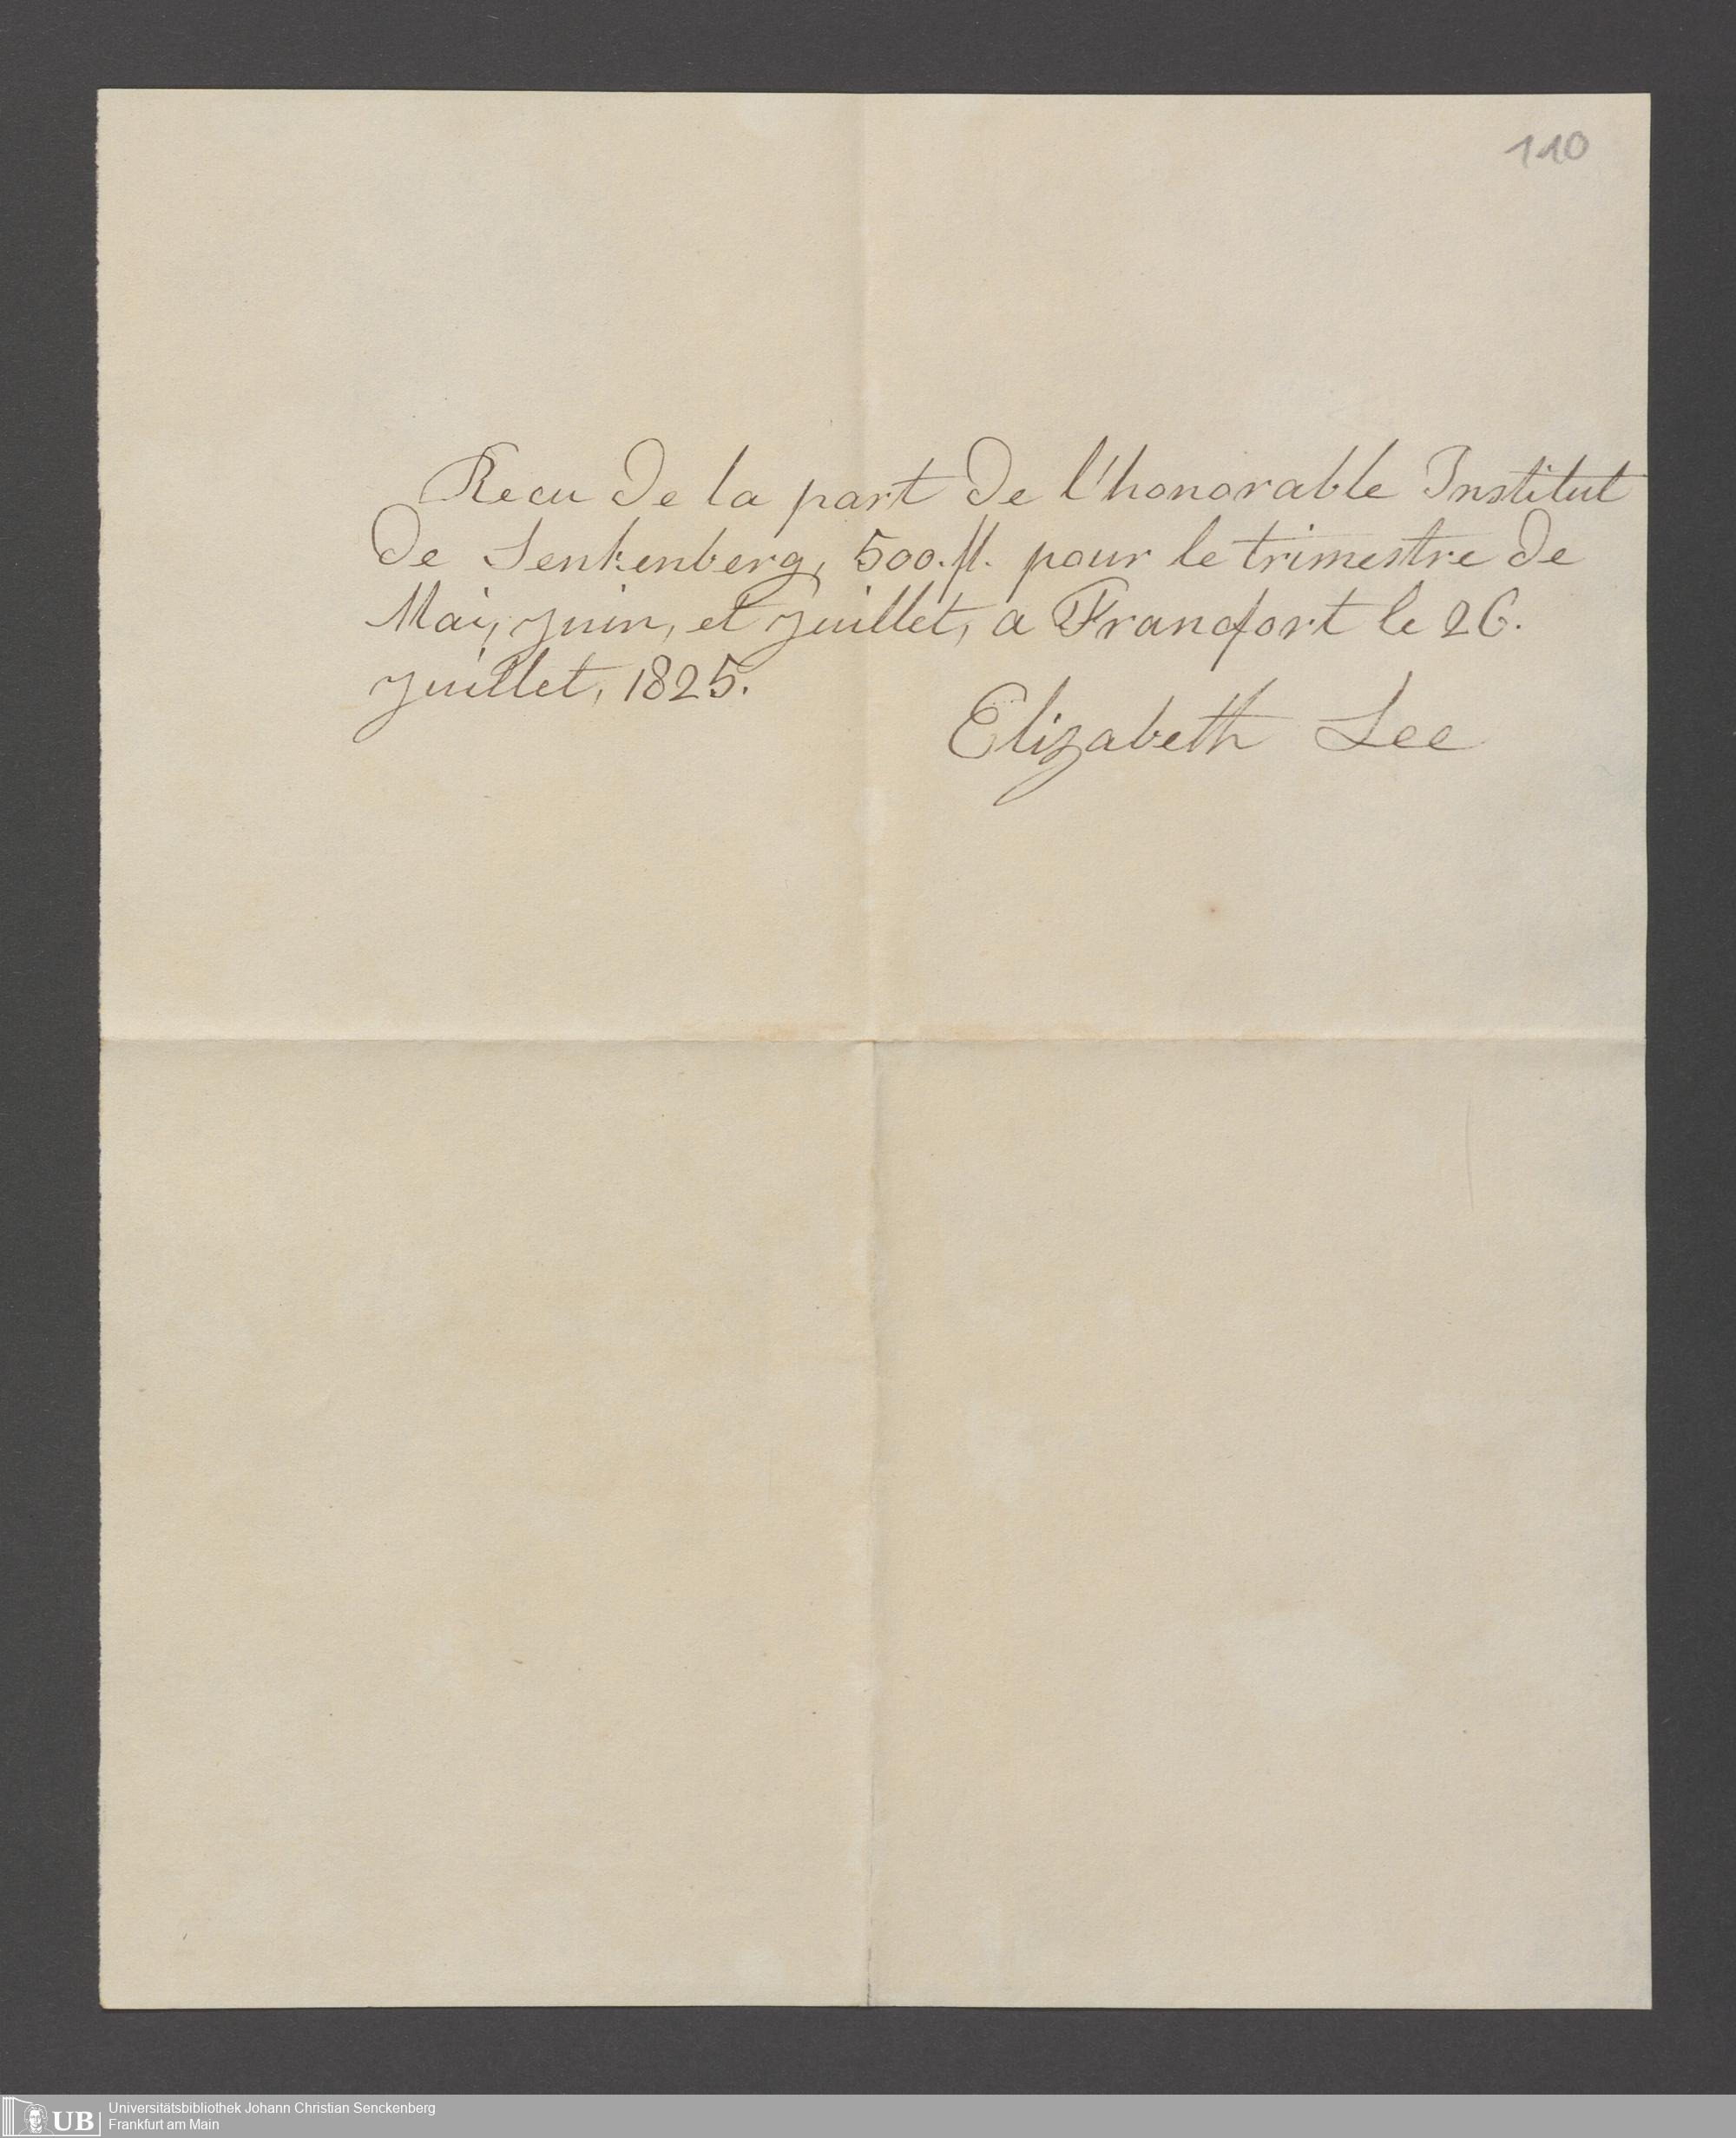 110
Recu de la part de l'honorable Institut
de Senkenberg, 500.fl. pour le trimestre de
Mai, juin, et juillet, a Francfort le 26.
juillet, 1825.
Elizabeth Lee
UB
Universitätsbibliothek Johann Christian Senckenberg
Frankfurt am Main